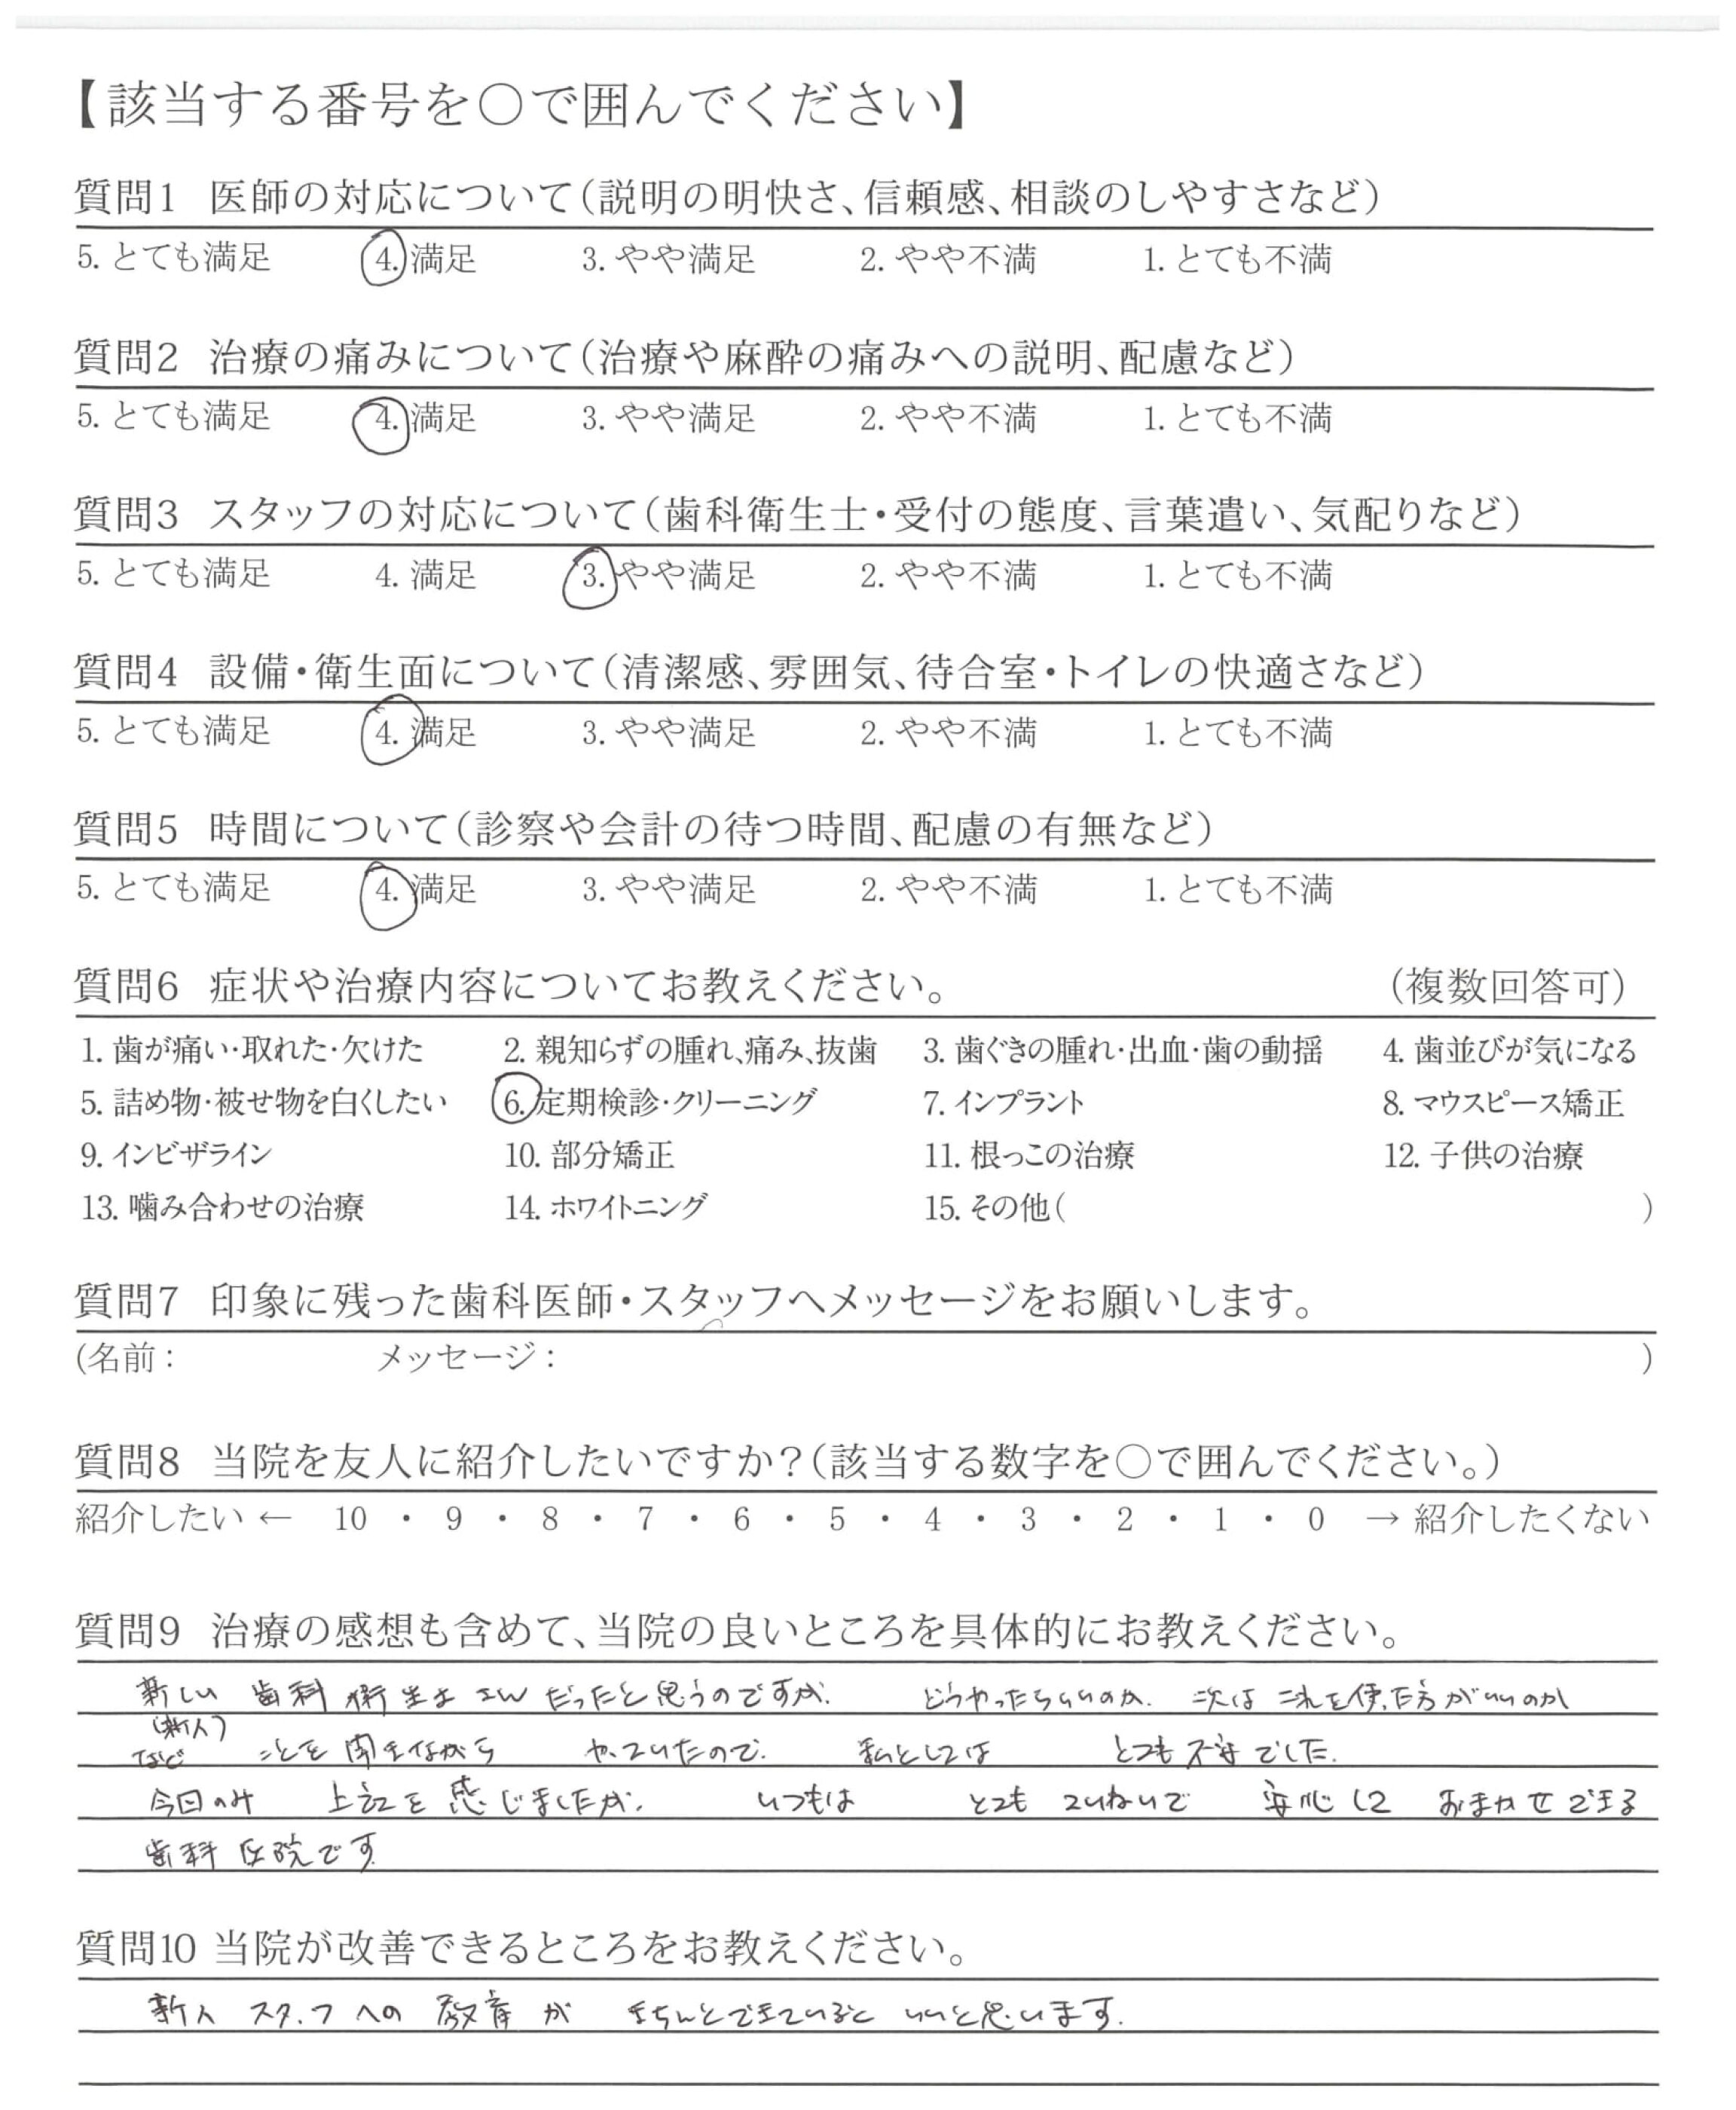 【該当する番号を〇で囲んでください】
質問1 医師の対応について（説明の明快さ、信頼感、相談のしやすさなど）
5. とても満足 4. 満足 3. やや満足 2. やや不満 1. とても不満
質問2 治療の痛みについて（治療や麻酔の痛みへの説明、配慮など）
5. とても満足 4. 満足 3. やや満足 2. やや不満 1. とても不満
質問3 スタッフの対応について（歯科衛生士・受付の態度、言葉遣い、気配りなど）
5. とても満足 4. 満足 3. やや満足 2. やや不満 1. とても不満
質問4 設備・衛生面について（清潔感、雰囲気、待合室・トイレの快適さなど）
5. とても満足 4. 満足 3. やや満足 2. やや不満 1. とても不満
質問5 時間について（診察や会計の待つ時間、配慮の有無など）
5. とても満足 4. 満足 3. やや満足 2. やや不満 1. とても不満
質問6 症状や治療内容についてお教えください。 （複数回答可）
1. 歯が痛い・取れた・欠けた 2. 親知らずの腫れ、痛み、抜歯 3. 歯ぐきの腫れ・出血・歯の動揺 4. 歯並びが気になる
5. 詰め物・被せ物を白くしたい 6. 定期検診・クリーニング 7. インプラント 8. マウスピース矯正
9. インビザライン 10. 部分矯正 11. 根っこの治療 12. 子供の治療
13. 噛み合わせの治療 14. ホワイトニング 15. その他（ ）
質問7 印象に残った歯科医師・スタッフへメッセージをお願いします。
(名前： メッセージ： ）
質問8 当院を友人に紹介したいですか？（該当する数字を〇で囲んでください。）
紹介したい ← 10 ・ 9 ・ 8 ・ 7 ・ 6 ・ 5 ・ 4 ・ 3 ・ 2 ・ 1 ・ 0 → 紹介したくない
質問9 治療の感想も含めて、当院の良いところを具体的にお教えください。
新しい 歯科衛生士さんだったと思うのですが、 どうやったらいいのか、次はこれを使った方がいいのか
(新人)
など ことを聞きながら やっていたので、 私としては とても不安でした。
今回のみ 上記を感じましたが、 いつもは とても ていねいで 安心して おまかせできる
歯科医院です
質問10 当院が改善できるところをお教えください。
新人 スタッフへの 教育が きちんとできていると いいと思います。